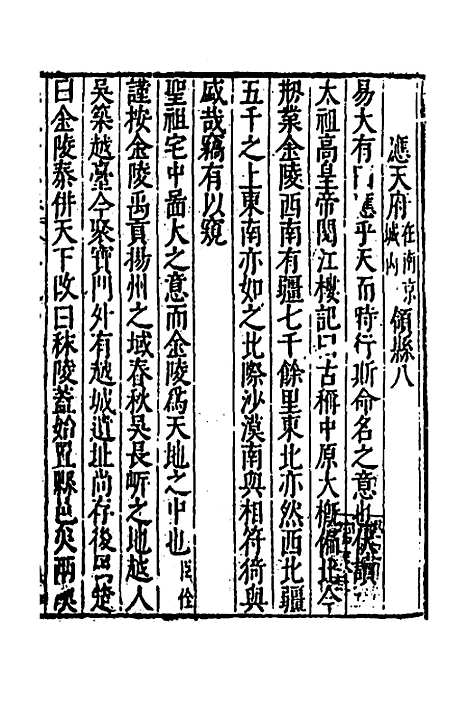 應天府在南京城內領縣八
易大有曰應乎天而時行斯命名之意也伏讀
太祖高皇帝閱江樓記曰古稱中原大概偏北今
剏業金陵西南有疆七千餘里東北亦然西北疆
五千之上東南亦如之北際沙漠南與相符猗與
盛哉竊有以窺
聖祖宅中啚大之意而金陵為天地之中也臣佺
謹按金陵禹貢揚州之域春秋吳長岸之地越人
吳築越臺今聚寶門外有越城遺址尚存後曰楚
曰金陵秦併天下改曰秣陵蓋始置縣邑矣兩漢